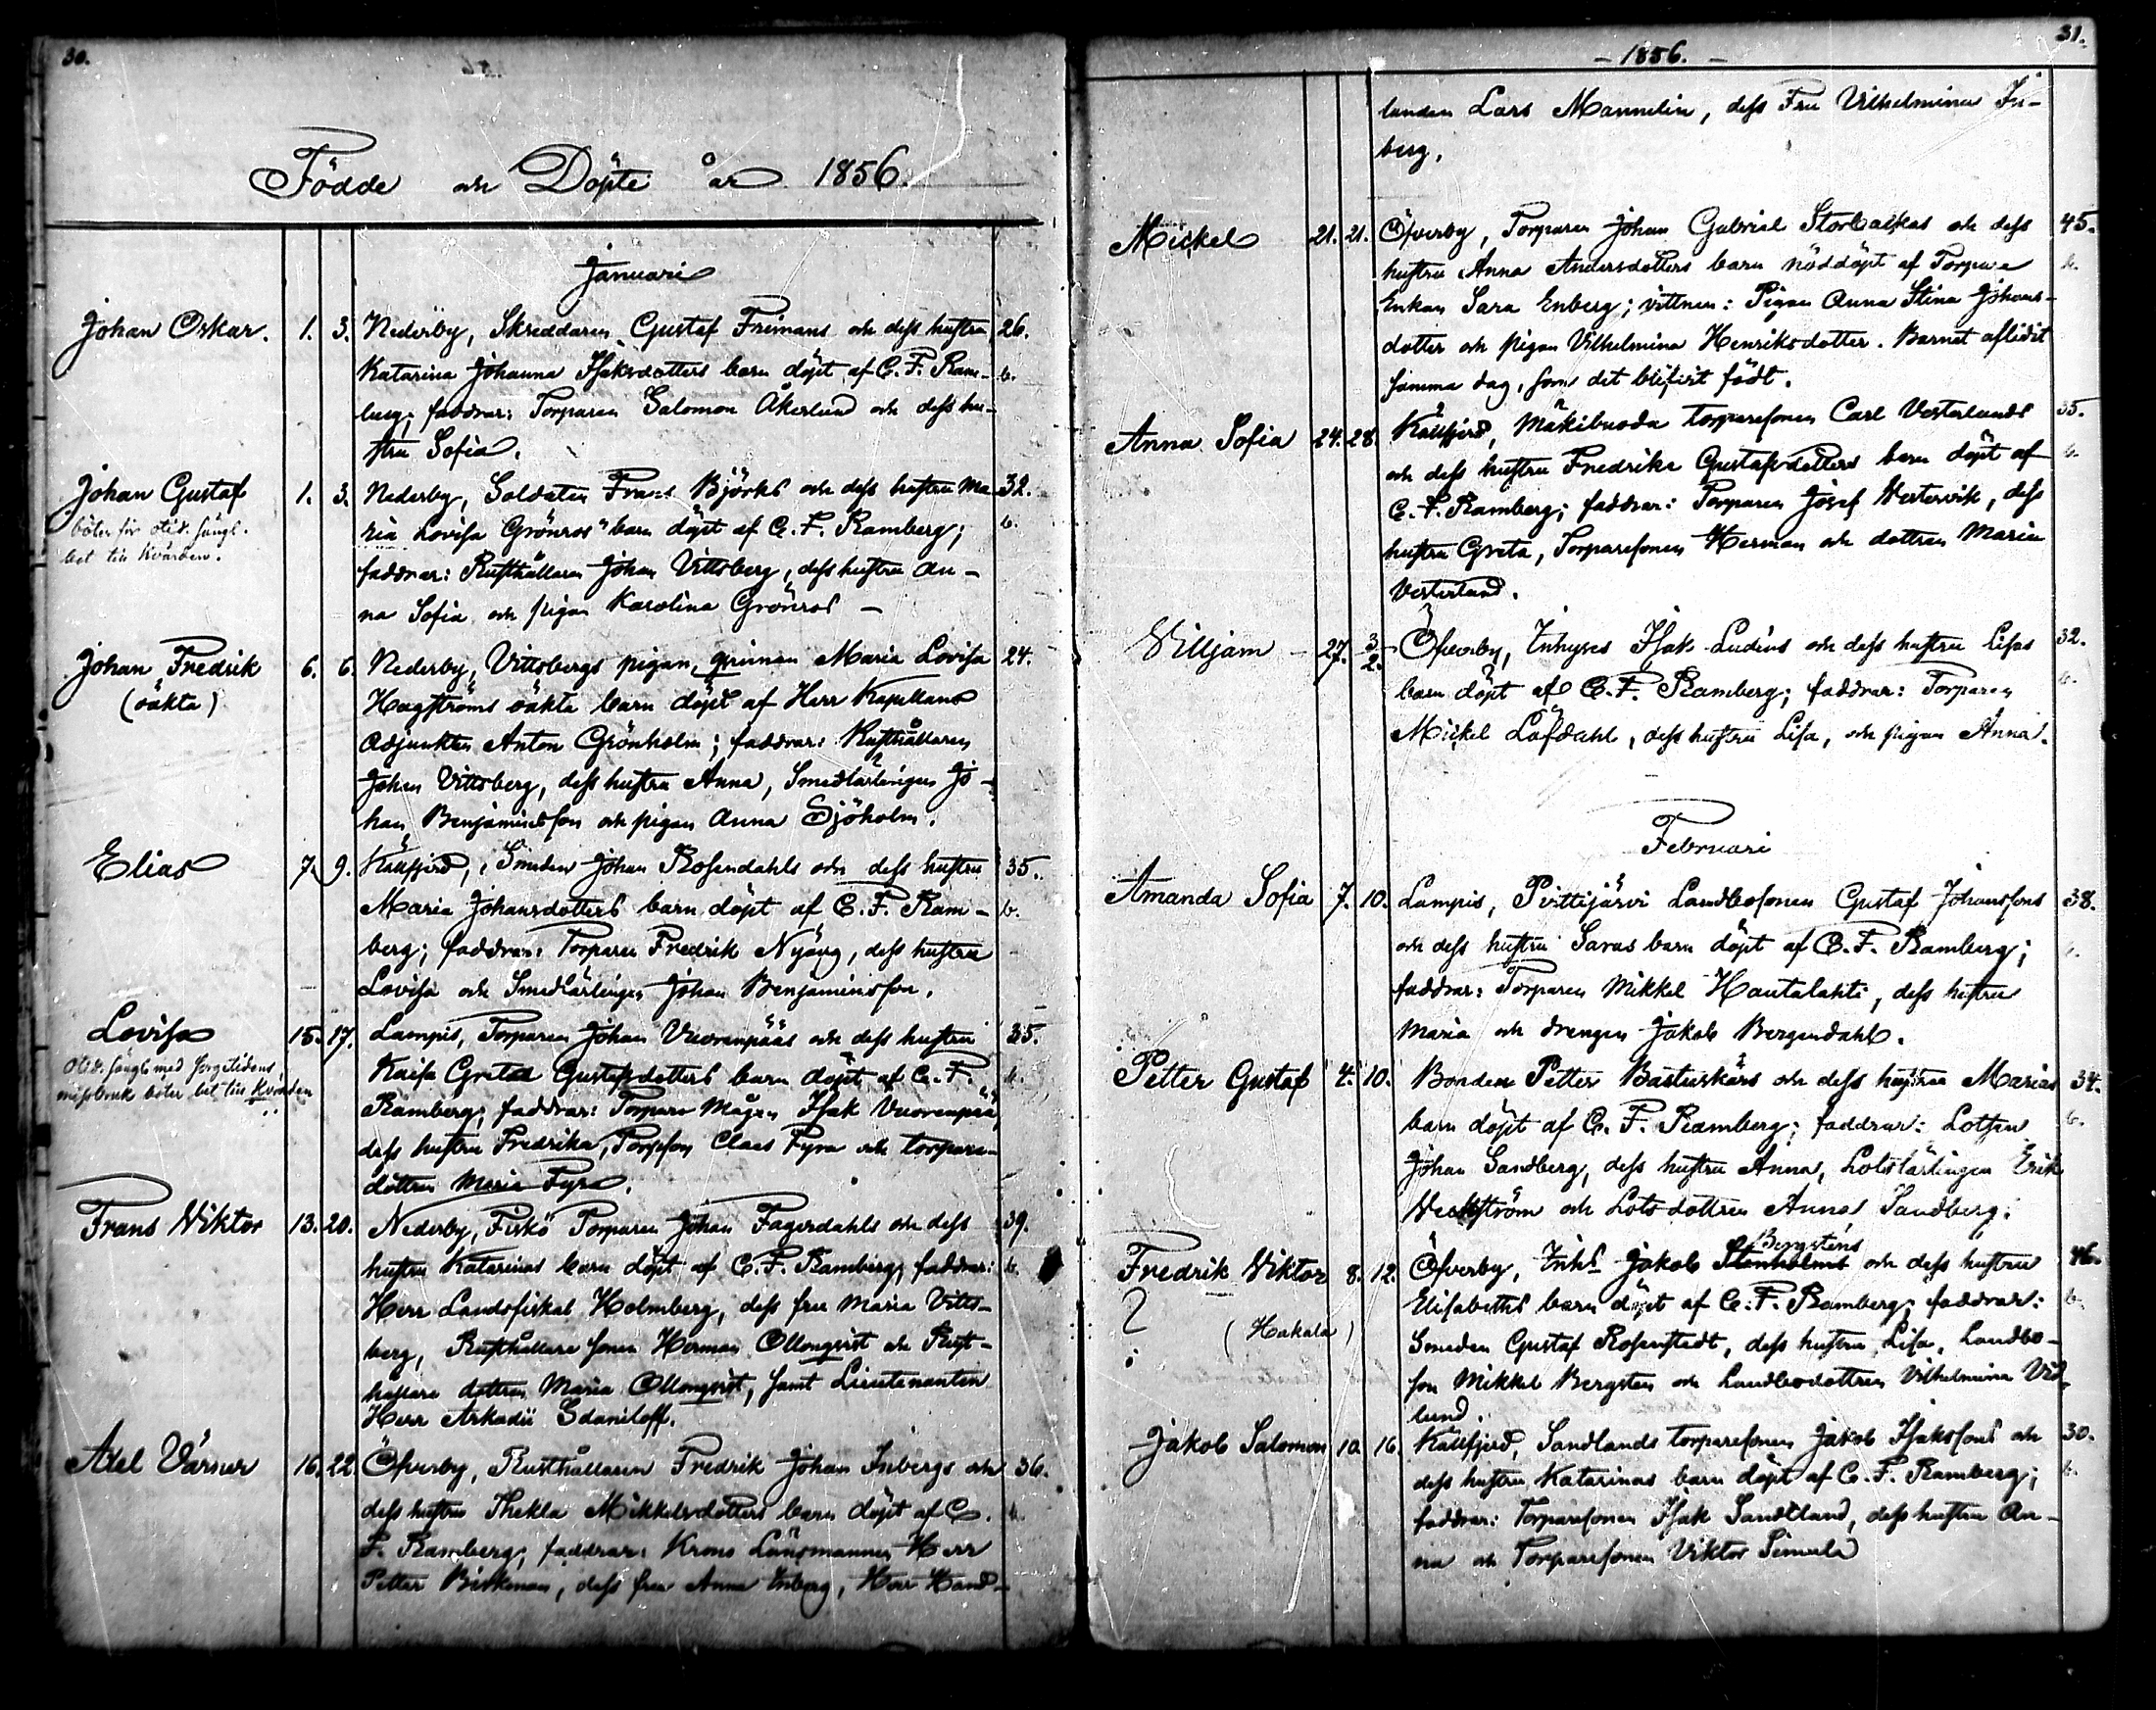 30.
Födde och Döpte år 1856.
Januari
Johan Oskar. 1. 3. Nederby, Skreddaren Gustaf Freimans och dess hustru 26.
Katarina Johanna Isaksdotters barn döpt af C. F. Ram- b.
berg; faddrar: Torparen Salomon Åkerlund och dess hu-
stru Sofia.
Johan Gustaf 1. 3. Nederby, Soldaten Frans Björks och dess hustru Ma- 32.
böter för otid. sängl. ria Lovisa Grönros' barn döpt af C. F. Ramberg; b.
bet. till Kvarden. faddrar: Rusthållaren Johan Vittsberg, dess hustru An-
na Sofia och pigan Karolina Grönros –
Johan Fredrik 6. 6. Nederby, Vittsbergs pigan, qvinnan Maria Lovisa 24.
(oäkta) Hagströms oäkta barn döpt af Herr Kapellans
Adjunkten Anton Grönholm; faddrar: Rusthållaren
Johan Vittsberg, dess hustru Anna, Smedlärlingen Jo-
han Benjaminsson och pigan Anna Sjöholm.
Elias 7. 9. Kållfjerd, Smeden Johan Rosendahls och dess hustru 35.
Maria Johansdotters barn döpt af C. F. Ram- b.
berg; faddrar: Torparen Fredrik Nyäng, dess hustru
Lovisa och Smedlärlingen Johan Benjaminsson.
Lovisa 15. 17. Lampis, Torparen Johan Vuorenpääs och dess hustru 35.
Otid. sängl. med sorgetidens Kaisa Greta Gustafsdotters barn döpt af C. F. b.
missbruk böter bet. till Kvarden Ramberg; faddrar: Torpare Mågen Isak Vuorenpää,
dess hustru Fredrika, Torp.son Claes Fyra och torpare-
dottren Maria Fyra.
Frans Viktor 13. 20. Nederby, Fiskö Torparen Johan Fagerdahls och dess 39.
hustru Katarinas barn döpt af C. F. Ramberg; faddrar: b.
Herr Landsfiskal Holmberg, dess fru Maria Vitts-
berg, Rusthållare sonen Herman Ollonqvist och Rust-
hållare dottren Maria Ollonqvist, samt Lieutenanten
Herr Arkadii Sdaniloff.
Axel Värner 16. 22. Öfverby, Rusthållaren Fredrik Johan Inbergs och 36.
dess hustru Thekla Mikkelsdotters barn döpt af C. b.
F. Ramberg; faddrar: Krono Länsmannen Herr
Petter Birkman, dess fru Anna Inberg, Herr Hand-
31.
– 1856. –
landen Lars Mannelin, dess Fru Vilhelmina In-
berg.
Mickel 21. 21. Öfverby, Torparen Johan Gabriel Storbackas och dess 45.
hustru Anna Andersdotters barn nöddöpt af Torpare b.
Enkan Sara Enberg; vittnen: Pigan Anna Stina Johans-
dotter och pigan Vilhelmina Henriksdotter. Barnet aflidit
samma dag, som det blifvit födt.
Anna Sofia 24. 28. Kållfjerd, Mäkibuoda torparesonen Carl Vesterlunds 35.
och dess hustru Fredrika Gustafsdotters barn döpt af b.
C. F. Ramberg; faddrar: Torparen Josef Vestervik, dess
hustru Greta, Torparesonen Herman och dottren Maria
Vesterlund.
Villjam 27. 3/2. Öfverby, Inhyses Isak Ludins och dess hustru Lisas 32.
barn döpt af C. F. Ramberg; faddrar: Torparen b.
Mickel Löfdahl, dess hustru Lisa, och pigan Anna.
Februari
Amanda Sofia 7. 10. Lampis, Pirttijärvi Landbosonen Gustaf Johanssons 38.
och dess hustru Saras barn döpt af C. F. Ramberg; b.
faddrar: Torparen Mikkel Hautalahti, dess hustru
Maria och drengen Jakob Bergendahl.
Petter Gustaf 4. 10. Bonden Petter Bastuskärs och dess hustru Marias 34.
barn döpt af C. F. Ramberg; faddrar: Lotsen b.
Johan Sandberg, dess hustru Anna, Lotslärlingen Erik
Veckström och Lotsdottren Anna Sandberg.
Bergstens
Fredrik Viktor 8. 12. Öfverby, Inhs Jakob Stenholms och dess hustru 46.
? Elisabeths barn döpt af C. F. Ramberg; faddrar: b.
(Hakala) Smeden Gustaf Rosenstedt, dess hustru Lisa, Landbo-
son Mikkel Bergsten och Landbodottren Vilhelmina Vid-
lund.
Jakob Salomon 10. 16. Kållfjerd, Sandlands torparesonen Jakob Isakssons och 30.
dess hustru Katarinas barn döpt af C. F. Ramberg; b.
faddrar: Torparesonen Isak Sandland, dess hustru An-
na och Torparesonen Viktor Simula